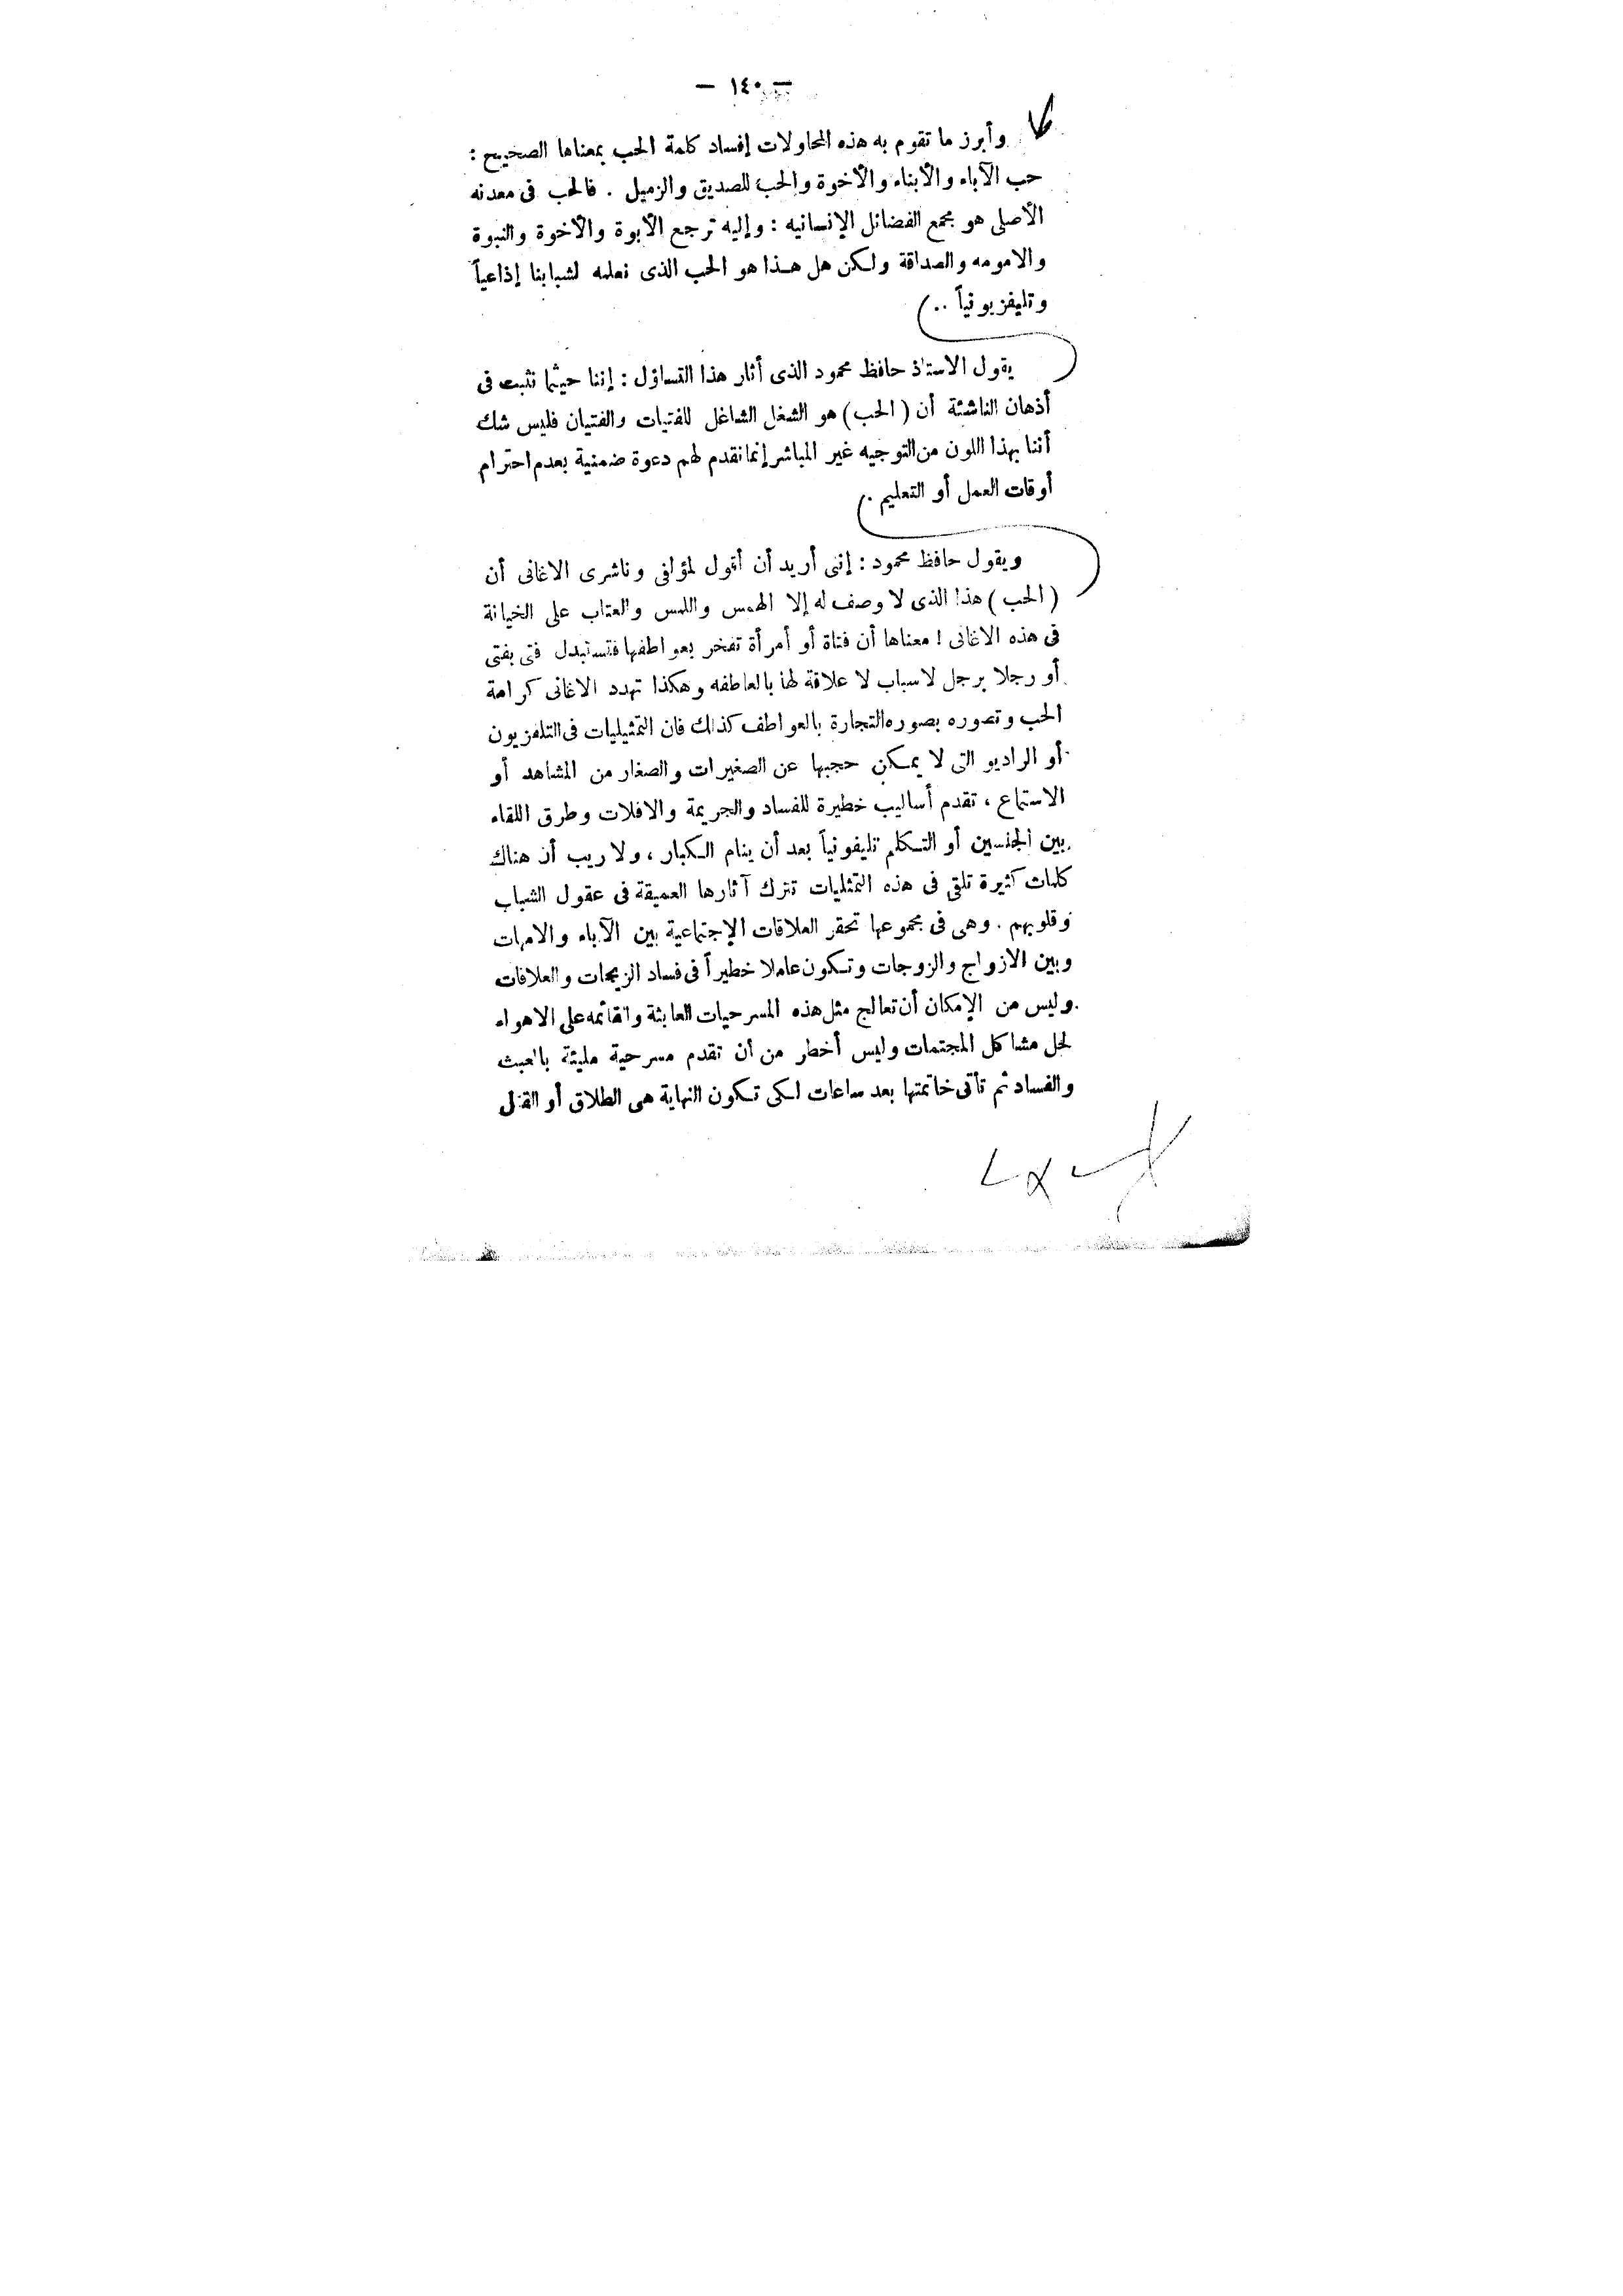 — ١٤٠ —
وأبرز ما تقوم به هذه المحاولات إفساد كلمة الحب بمعناها الصحيح :
حب الآباء والأبناء والأخوة والحب للصديق والزميل . فالحب فى معدنه
الأصلى هو مجمع الفضائل الإنسانيه : وإليه ترجع الأبوة والأخوة والنبوة
والامومه والصداقة ولكن هل هذا هو الحب الذى نعلمه لشبابنا إذاعياً
وتليفزيونياً ..
يقول الاستاذ حافظ محمود الذى أثار هذا التساؤل : إننا حيثما نثبت فى
أذهان الناشئة أن ( الحب ) هو الشغل الشاغل للفتيات والفتيان فليس شك
أننا بهذا اللون من التوجيه غير المباشر إنما نقدم لهم دعوة ضمنية بعدم احترام
أوقات العمل أو التعليم .
ويقول حافظ محمود : إننى أريد أن أقول لمؤلفى وناشرى الاغانى أن
( الحب ) هذا الذى لا وصف له إلا الهمس واللمس والعتاب على الخيانة
فى هذه الاغانى ! معناها أن فتاة أو أمرأة تفخر بعواطفها فتستبدل فتى بفتى
أو رجلا برجل لاسباب لا علاقة لها بالعاطفه وهكذا تهدد الاغانى كرامة
الحب وتصوره بصوره التجارة بالعواطف كذلك فان التمثيليات فى التلفزيون
أو الراديو التى لا يمكن حجبها عن الصغيرات والصغار من المشاهد أو
الاستماع ، تقدم أساليب خطيرة للفساد والجريمة والافلات وطرق اللقاء
بين الجنسين أو التكلم تليفونياً بعد أن ينام الكبار ، ولا ريب أن هناك
كلمات كثيرة تلقى فى هذه التمثليات تترك آثارها العميقة فى عقول الشباب
وقلوبهم . وهى فى مجموعها تحقر العلاقات الإجتماعية بين الآباء والامهات
وبين الازواج والزوجات وتكون عاملا خطيراً فى فساد الزيجات والعلاقات
وليس من الإمكان أن تعالج مثل هذه المسرحيات العابثة والقائمه على الاهواء
لحل مشاكل المجتمات وليس أخطر من أن تقدم مسرحية مليئة بالعبث
والفساد ثم تأتى خاتمتها بعد ساعات لكى تكون النهاية هى الطلاق أو القتل